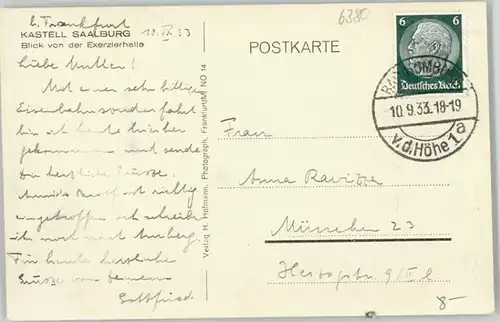 b. Frankfurt
KASTELL SAALBURG
Blick von der Exerzierhalle
10. IX. 33
6380
POSTKARTE
6 6
Deutsches Reich
BAD HOMBURG
10.9.33.18-19
v.d.Höhe 1a
Liebe Mutter!
Mit einer sehr billigen
Eisenbahnsonderfahrt
bin ich heute hierher
gekommen und sende
Dir herzliche Grüsse.
ist richtig
eingetroffen ich schreibe
ihr noch nach
Für heute herzliche
Grüsse von Deinem
Gottfried
Verlag H. Hofmann, Photograph, Frankfurt/M. NO 14
Frau
Anna Ravizza
München 23
Herzogstr. 9/III l
8-